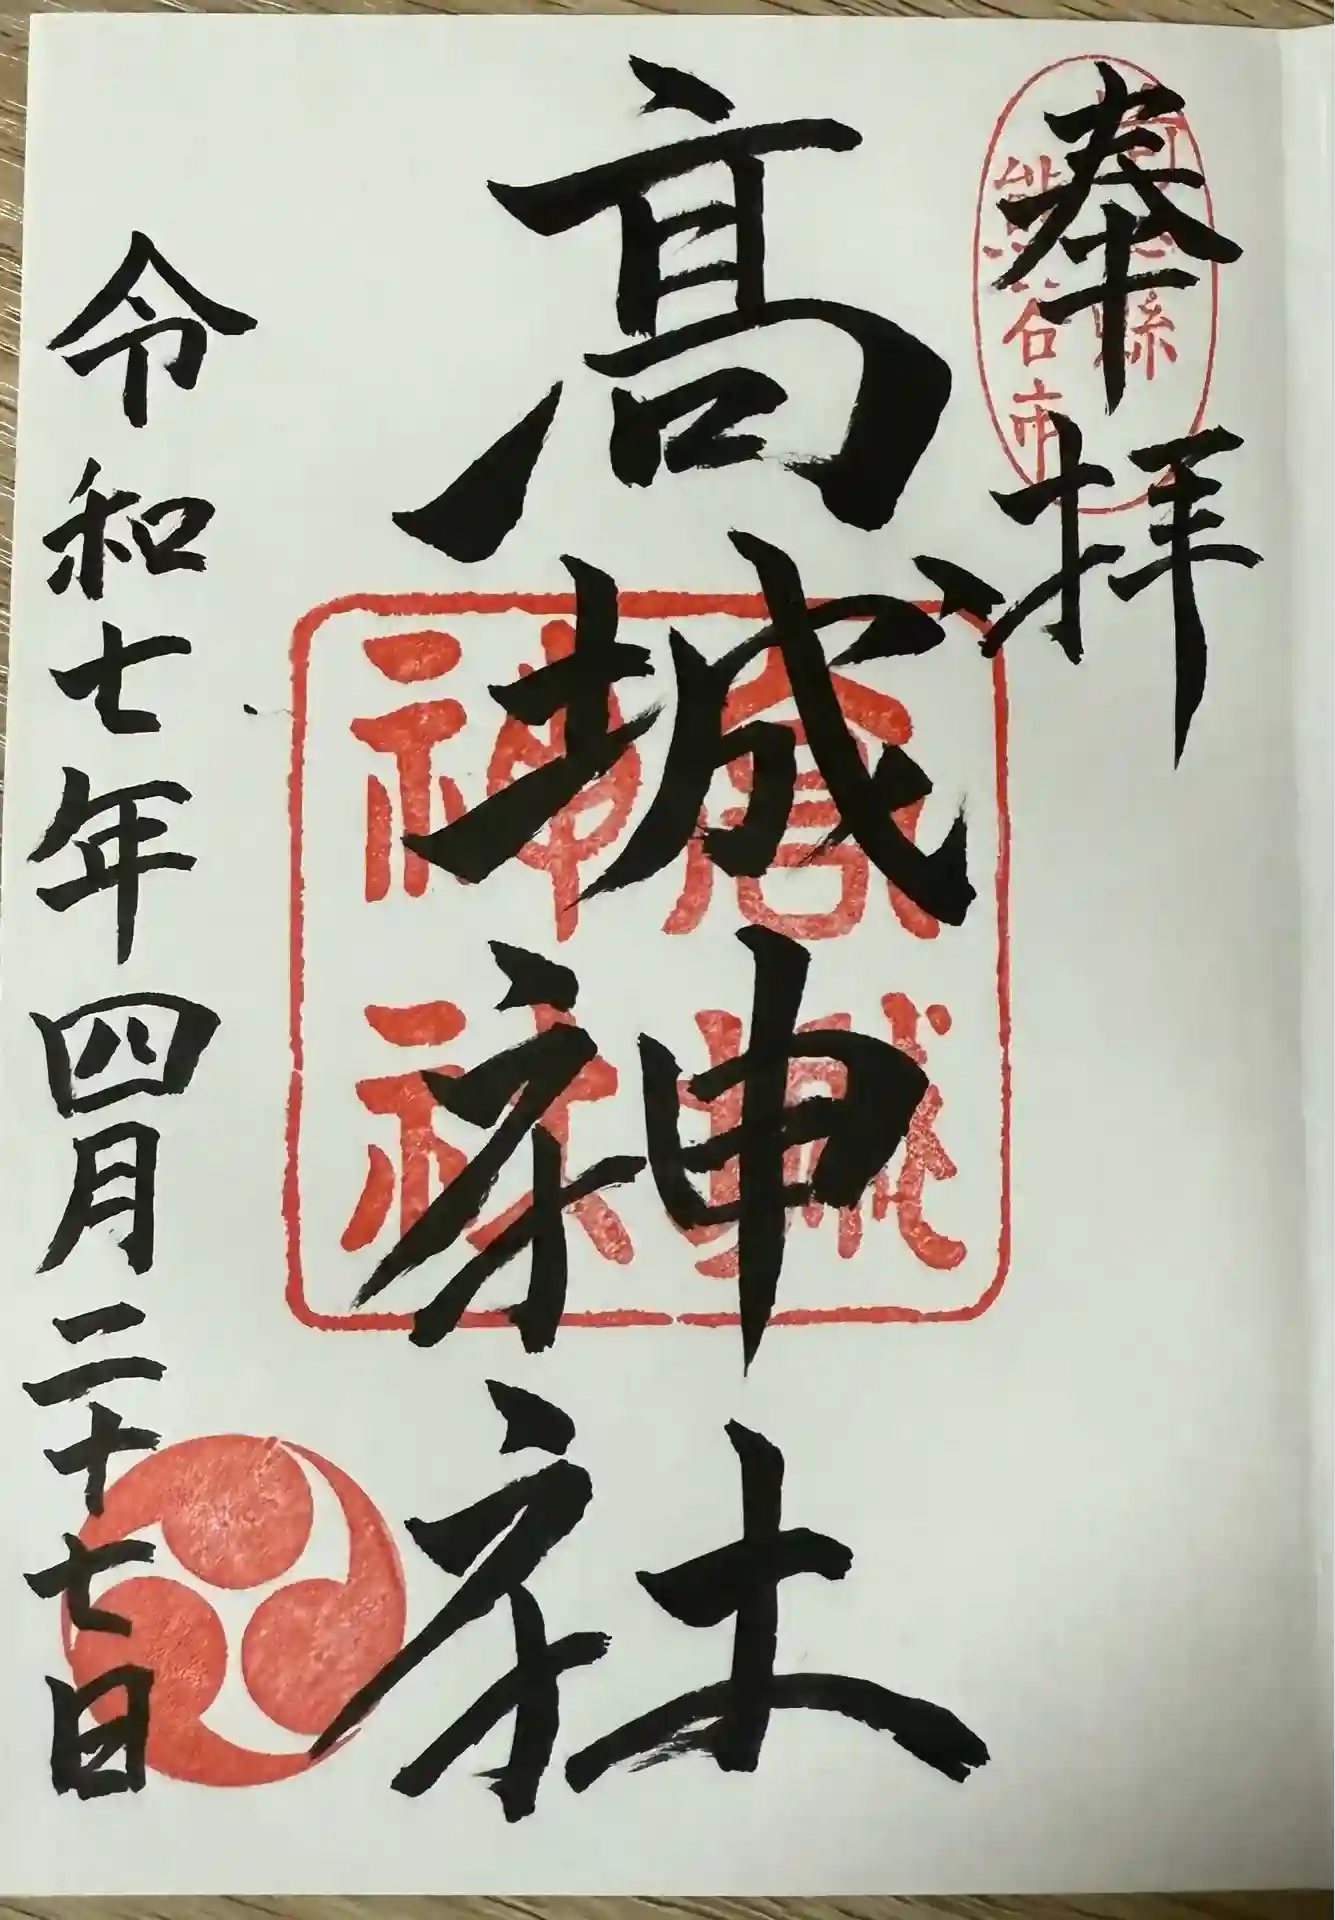 奉拝
熊谷市
髙城神社
高城
神社
令和七年四月二十七日